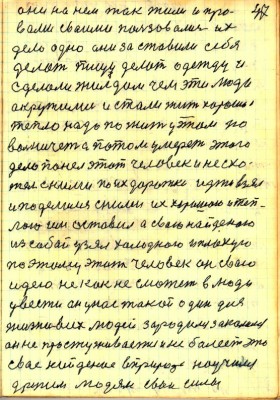 они на нем так жили и про 47
вали своими пользовались их
дело одно они заставили себя
делать пищу делать одежду и
сделали жилдом чем эти люди
окружили и стали жить хорошо
тепло надо пожить у том по
величета а потом умереть этого
дело понел этот человек и не схо
тел с ними по их дорожке идти взял
и поделился с ними их хорошою и теп
лою им оставил а свою найденою
из собай узял холодного и плохую
поэтому этот человек он свою
идею не как не сможет в люди
увести он у нас такой один для
жизнивих людей зародил закалил
он не простуживается и не болеет это
свое найденое в природе научился
другим людям свои силы